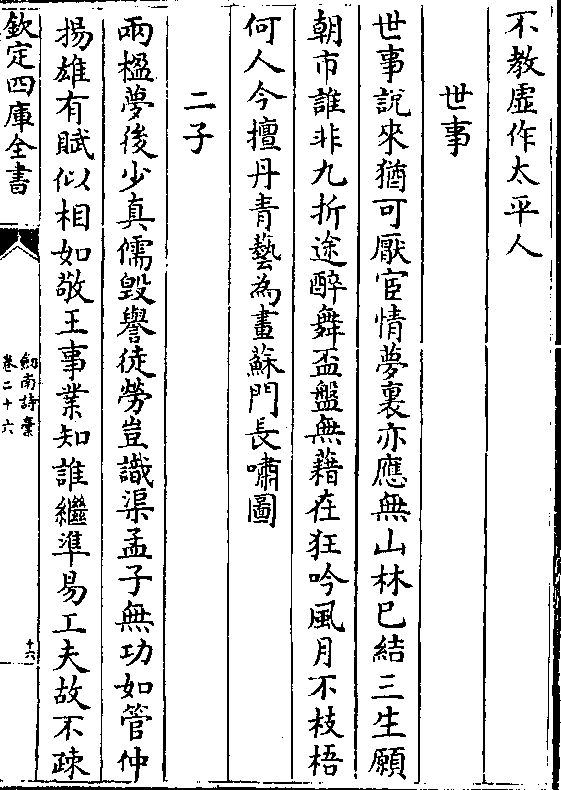 不教虛作太平人
世事
世事說來猶可厭宦情夢裏亦應無山林已結三生願
朝市誰非九折途醉舞盃盤無藉在狂吟風月不枝梧
何人今擅丹青藝為畫蘇門長嘯圖
二子
兩楹夢後少真儒毀譽徒勞豈識渠孟子無功如管仲
揚雄有賦似相如敬王事業知誰繼準易工夫故不疎
欽定四庫全書
劒南詩稾
卷二十六
十六